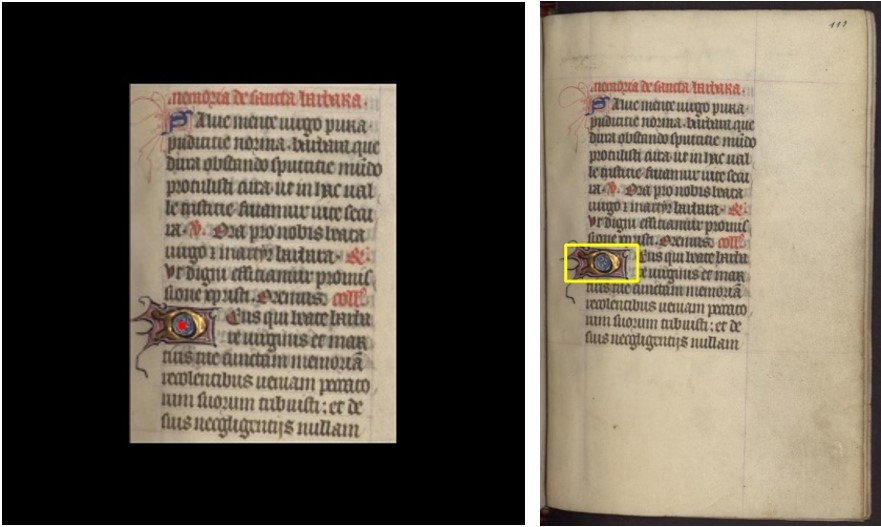 memoria de sancta barbara
Salue mente uirgo pura
pudicitie norma barbara que
dura obstando spurcitie mūdo
protulisti cura ut in hac ual
le tristicie fruamur uite secu
ra. V. Ora pro nobis beata
uirgo z martyr barbara. R.
Vt digni efficiamur promis
sione xpristi. Oremus. coll
Deus qui beate barba
re uirginis et mar
tiris tue cunctam memoriā
recolentibus ueniam peccato
rum suorum tribuisti: et de
suis necgligentijs nullam
111
memoria de sancta barbara
Salue mente uirgo pura
pudicitie norma barbara que
dura obstando spurcitie mūdo
protulisti cura ut in hac ual
le tristicie fruamur uite secu
ra. V. Ora pro nobis beata
uirgo z martyr barbara. R.
Vt digni efficiamur promis
sione xpristi. Oremus. coll
Deus qui beate barba
re uirginis et mar
tiris tue cunctam memoriā
recolentibus ueniam peccato
rum suorum tribuisti: et de
suis necgligentijs nullam